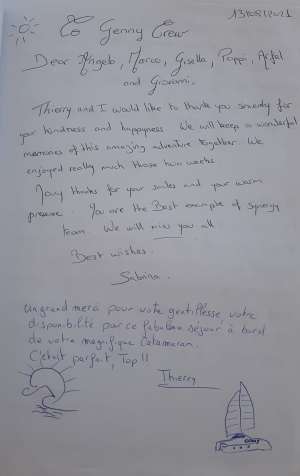 13/08/2021
To Genny Crew
Dear Angelo, Marco, Gisella, Pappi,
and Giovanni.
Thierry and I would like to thank you sincerely for
your kindness and happyness We will keep a wonderful
memories of this amazing adventure together. We
enjoyed really much those two weeks
Many thanks for your smiles and your warm
presence. You are the Best example of synergy
team. We will miss you all
Best wishes.
Sabrina.
Un grand merci pour votre gentillesse votre
disponibilité par ce fabuleux séjour à bord
de votre magnifique Catamaran.
C'était parfait, Top !!
Thierry